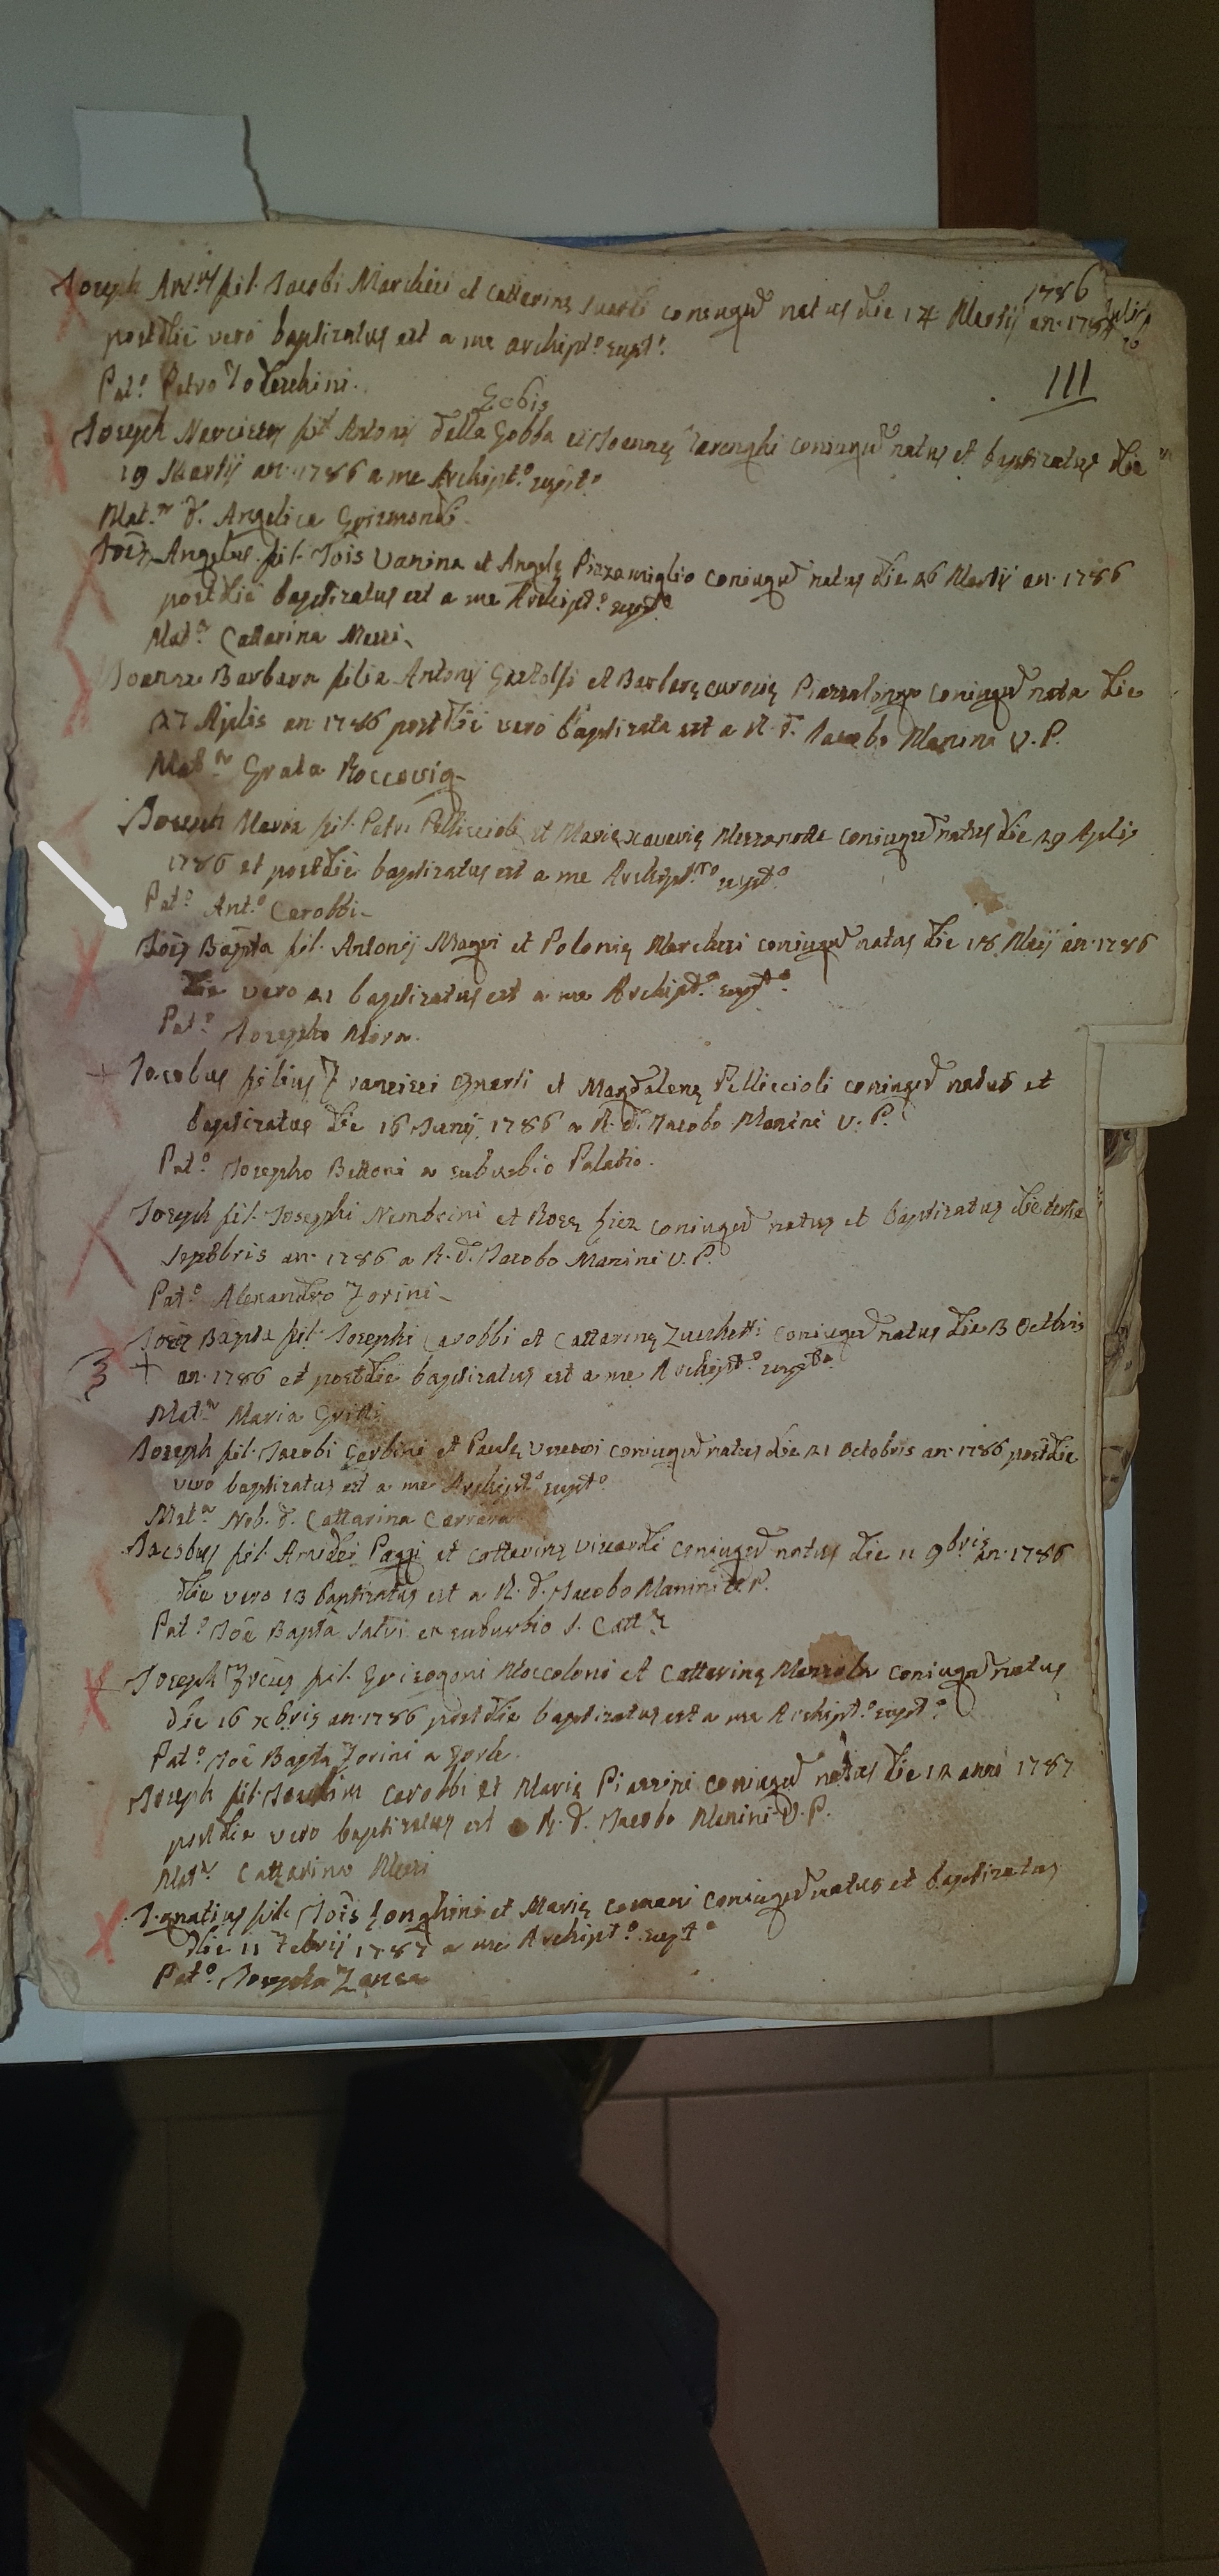 1786
Joseph Ant. fil. Jacobi Marchesi et Catterinę Suardi coniugū natus die 17 Martij an. 1786
postdie vero baptizatus est a me archipt.º supt.º
Pat.º Petro Todeschini.
111
Gobis
Joseph Narcissus fil. Antonij della Gobba et Joannę Tarenghi coniugū natus et baptizatus die
19 Martij an. 1786 a me Archipt.º supt.º
Mat.ª d. Angelica Grismondi.
Joēs Angelus fil. Jois Vanina et Angelę Piazzamiglio coniugū natus die 26 Martij an. 1786
postdie baptizatus est a me Archipt.º supt.º
Mat.ª Cattarina Messi
Joanna Barbara filia Antonij et Barbarę coniugū nata die
27 Aplis an. 1786 postdie vero baptizata est a R. d. Jacobo Manini V. P.
Mat.ª Grata
Joseph Maria fil. Petri Pelliccioli et Marię Xaverię Mezzanotte coniugū natus die 29 Aplis
1786 et postdie baptizatus est a me Archipt.º supt.º
Pat.º Ant.º Carobbi
Joēs Bapta fil. Antonij Magri et Polonię Marchesi coniugū natus die 18 Maij an. 1786
die vero 21 baptizatus est a me Archipt.º supt.º
Pat.º Josepho Mora.
Jacobus filius Francisci et Magdalenę Pelliccioli coniugū natus et
baptizatus die 16 Junij 1786 a R. d. Jacobo Manini V. P.
Pat.º Josepho Bettoni a suburbio Palatio.
Joseph fil. Josephi Nembrini et Rosę coniugū natus et baptizatus die tertia
septēbris an. 1786 a R. d. Jacobo Manini V. P.
Pat.º Alexandro Zorini
Joēs Bapta fil. Josephi Carobbi et Cattarinę Zucchetti coniugū natus die 13 Octbris
3 + an. 1786 et postdie baptizatus est a me Archipt.º supt.º
Mat.ª Maria Gritti
Joseph fil. Jacobi Carbini et Paulę coniugū natus die 21 Octobris an. 1786 postdie
vero baptizatus est a me Archipt.º supt.º
Mat.ª Nob. d. Cattarina Carrara
Jacobus fil. Amidei Paggi et Cottarinę Viscardi coniugū natus die 11 9bris an. 1786
die vero 13 baptizatus est a R. d. Jacobo Manini V. P.
Pat.º Joē Bapta Salvi ex suburbio S. Catt.ę
Joseph fil. Grisogoni Moccoloni et Cattarinę coniugū natus
die 16 xbris an. 1786 postdie baptizatus est a me Archipt.º supt.º
Pat.º Joē Bapta Zorini a Gorle.
Joseph fil. Joachim Carobbi et Marię Piazzini coniugū natus die 12 anni 1787
postdie vero baptizatus est a R. d. Jacobo Manini V. P.
Mat.ª Cattarina Messi
Ignatius fil. Jois Longhini et Marię Comani coniugū natus et baptizatus
die 11 Febrij 1787 a me Archipt.º supt.º
Pat.º Josepho Zanca